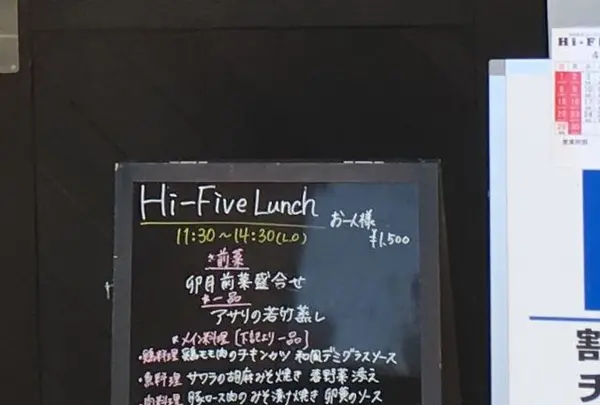 Hi-Five Lunch
お一人様
¥1,500
11:30~14:30(L.O)
*前菜
前菜盛合せ
*一品
アサリの若竹蒸し
*メイン料理[下記より一品]
・鶏料理 鶏モモ肉のチキンカツ 和風デミグラスソース
・魚料理 サワラの胡麻みそ焼き 春野菜添え
・肉料理 豚ロース肉のみそ漬け焼き 卵黄のソース
Hi-F
割
チ